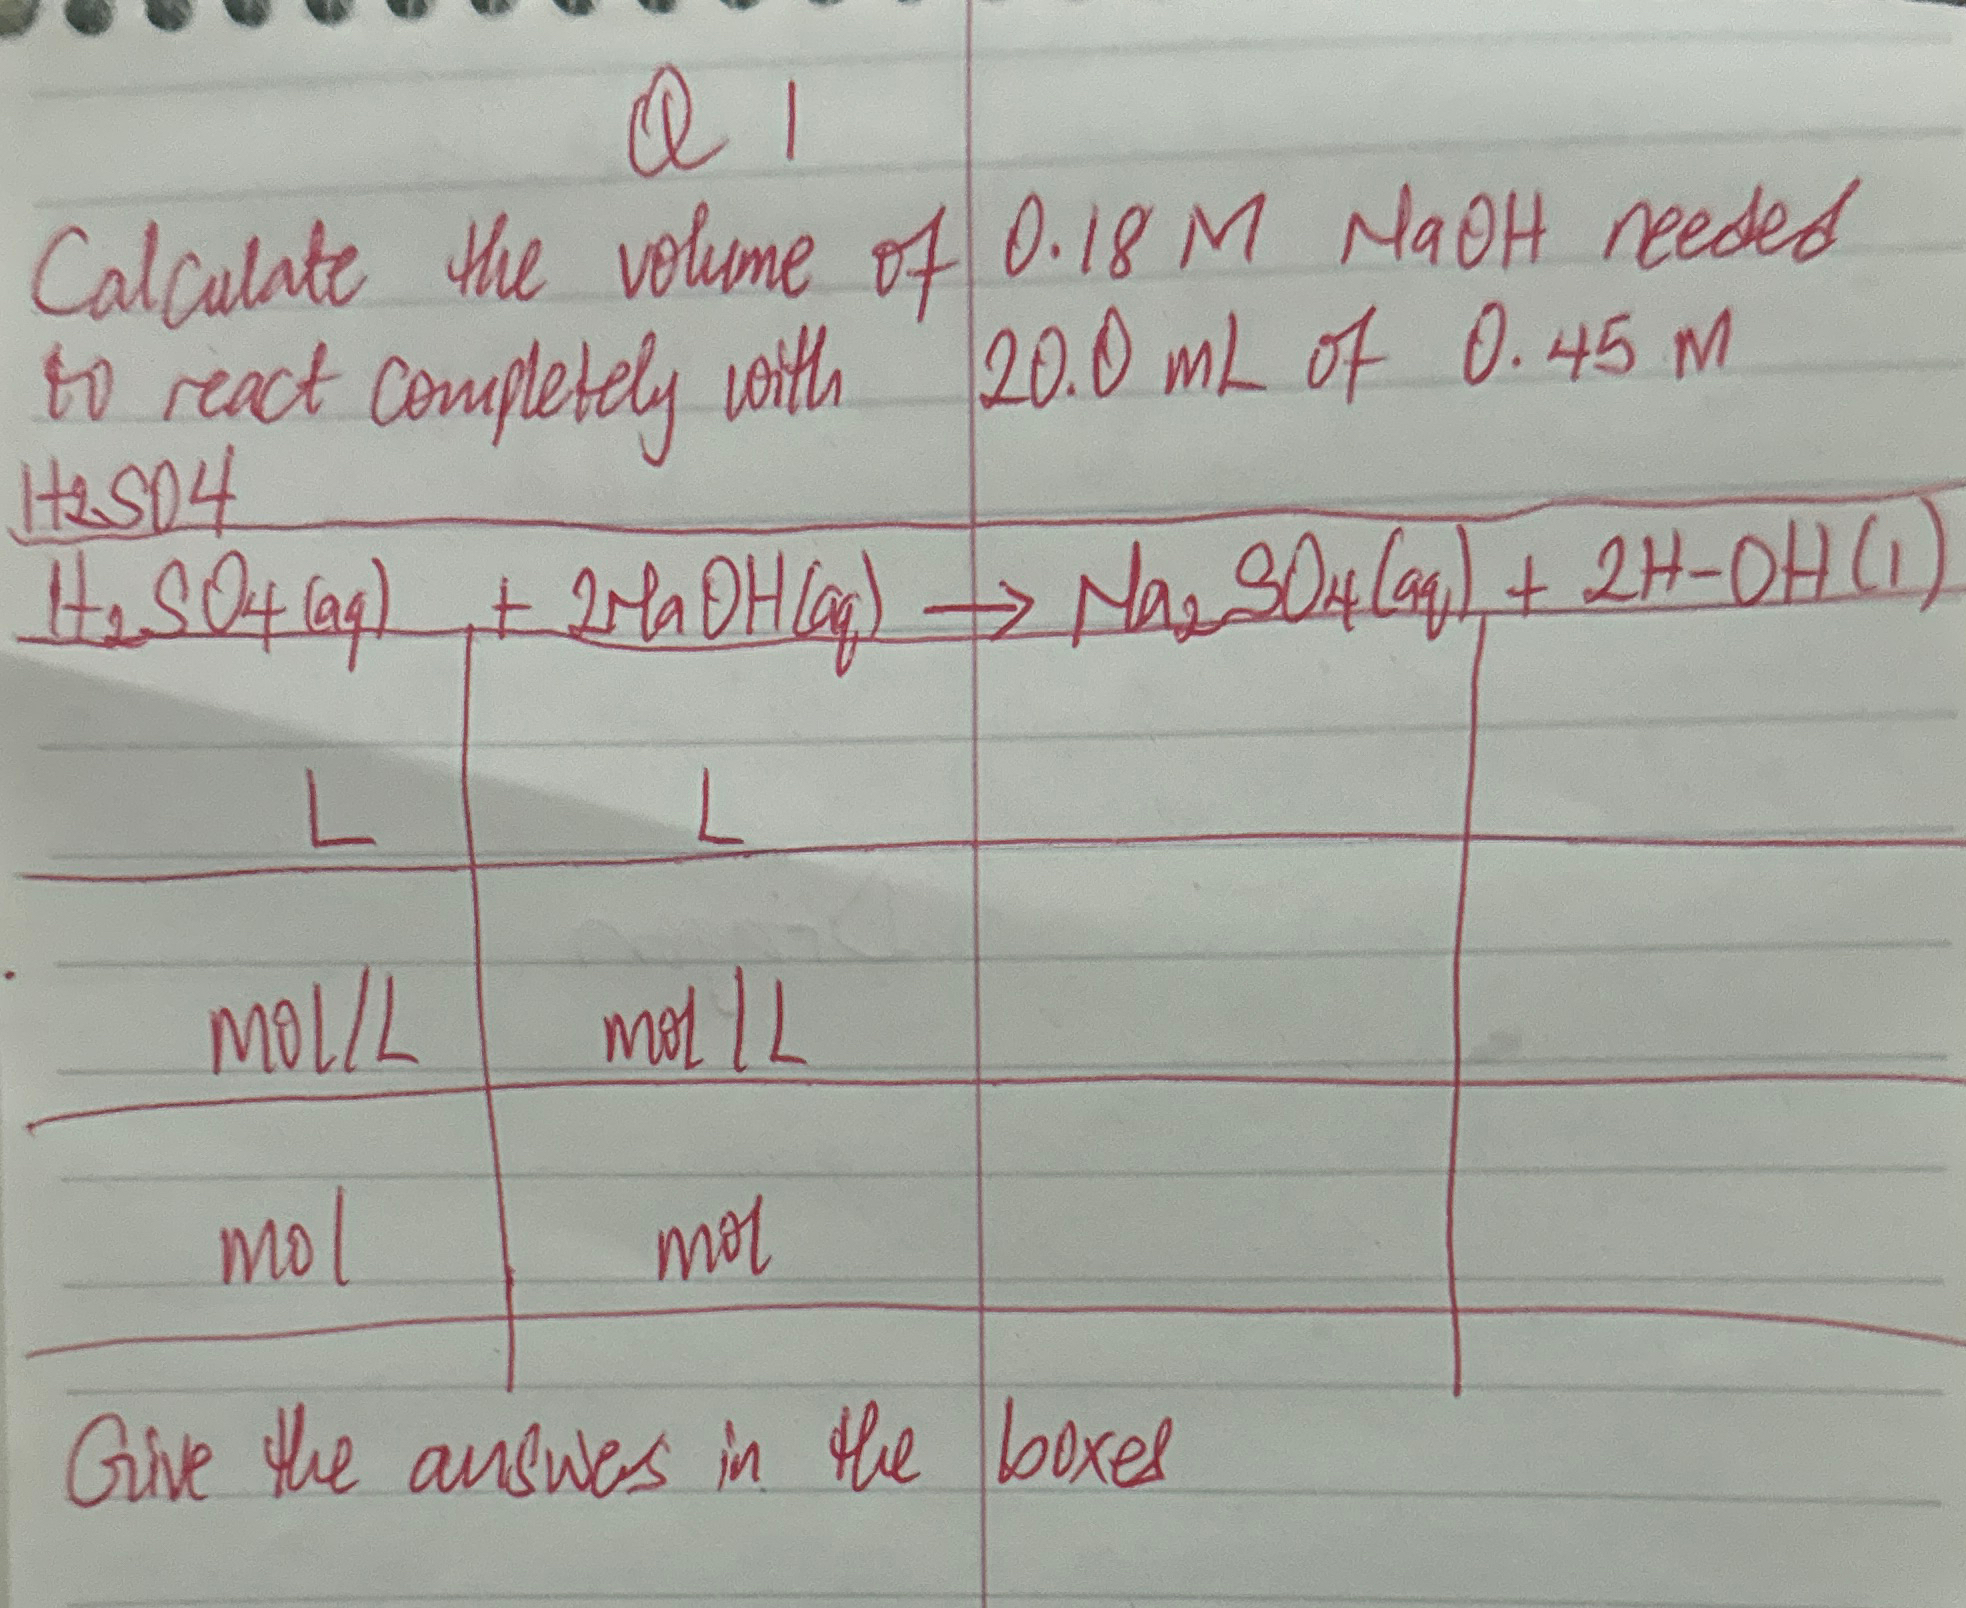 Q 1
Calculate the volume of 0.18 M NaOH needed
to react completely with 20.0 mL of 0.45 M
H2SO4
H₂SO₄(aq) + 2NaOH(aq) → Na₂SO₄(aq) + 2H-OH(l)
L L
mol/L mol/L
mol mol
Give the answers in the boxes